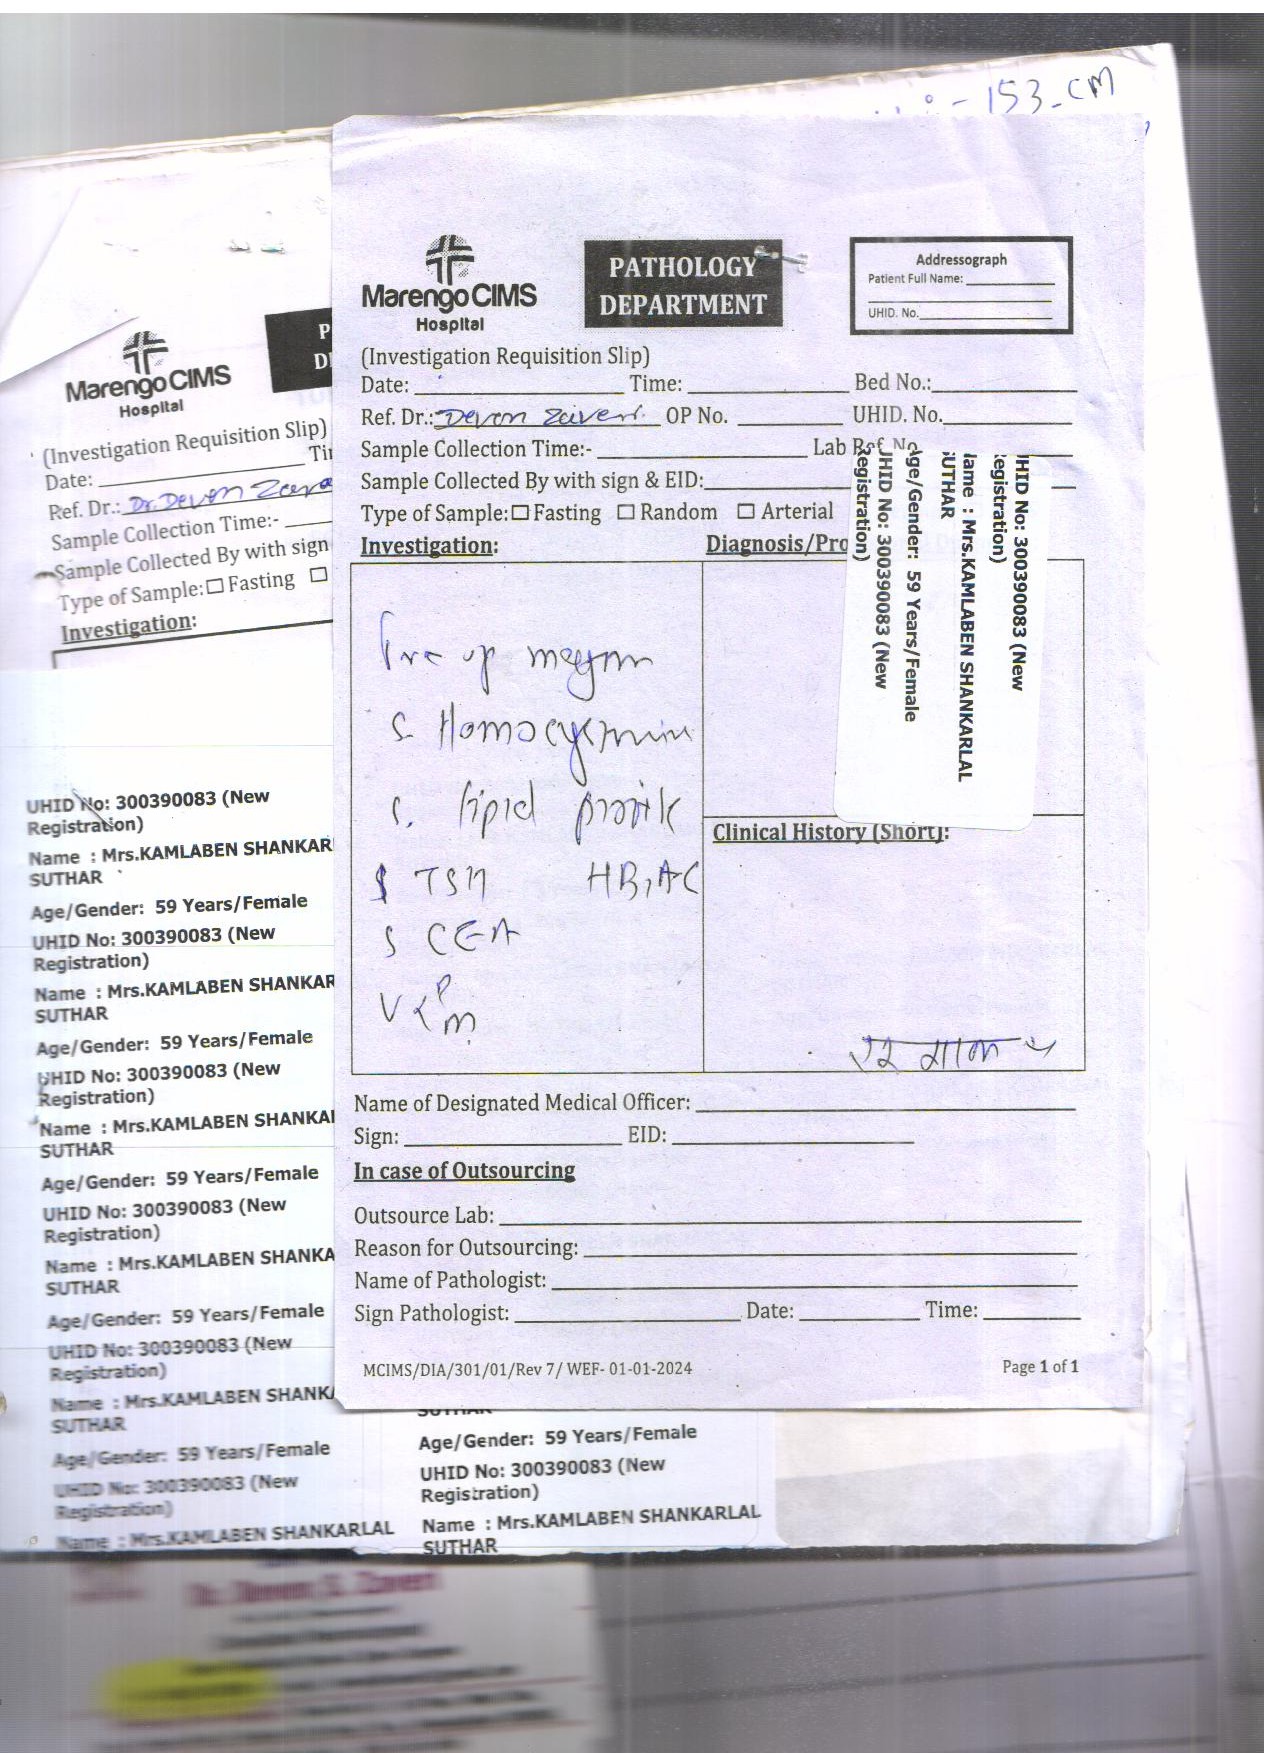 - 153-CM
Marengo CIMS
Hospital
PATHOLOGY
DEPARTMENT
Addressograph
Patient Full Name:
UHID. No.
(Investigation Requisition Slip)
Date: Time: Bed No.:
Ref. Dr.: Deven Zaveri OP No. UHID. No.
Sample Collection Time:- Lab Ref. No.
Sample Collected By with sign & EID:
Type of Sample: Fasting Random Arterial
Investigation: Diagnosis/Pro
UHID No: 300390083 (New
Registration)
Name : Mrs.KAMLABEN SHANKARLAL
SUTHAR
Age/Gender: 59 Years/Female
UHID No: 300390083 (New
Registration)
Pre op
S. Homocysteine
S. lipid profile
S TSH HB1AC
S CEA
Clinical History (Short):
Name of Designated Medical Officer:
Sign: EID:
In case of Outsourcing
Outsource Lab:
Reason for Outsourcing:
Name of Pathologist:
Sign Pathologist: Date: Time:
MCIMS/DIA/301/01/Rev 7/ WEF- 01-01-2024 Page 1 of 1
Marengo CIMS
Hospital
(Investigation Requisition Slip)
Date:
Ref. Dr.: Dr. Deven
Sample Collection Time:-
Sample Collected By with sign
Type of Sample: Fasting
Investigation:
UHID No: 300390083 (New
Registration)
Name : Mrs.KAMLABEN SHANKAR
SUTHAR
Age/Gender: 59 Years/Female
UHID No: 300390083 (New
Registration)
Name : Mrs.KAMLABEN SHANKAR
SUTHAR
Age/Gender: 59 Years/Female
UHID No: 300390083 (New
Registration)
Name : Mrs.KAMLABEN SHANKA
SUTHAR
Age/Gender: 59 Years/Female
UHID No: 300390083 (New
Registration)
Name : Mrs.KAMLABEN SHANKA
SUTHAR
Age/Gender: 59 Years/Female
UHID No: 300390083 (New
Registration)
Name : Mrs.KAMLABEN SHANKA
SUTHAR
Age/Gender: 59 Years/Female
UHID No: 300390083 (New
Registration)
Name : Mrs.KAMLABEN SHANKARLAL
SUTHAR
Age/Gender: 59 Years/Female
UHID No: 300390083 (New
Registration)
Name : Mrs.KAMLABEN SHANKARLAL
SUTHAR